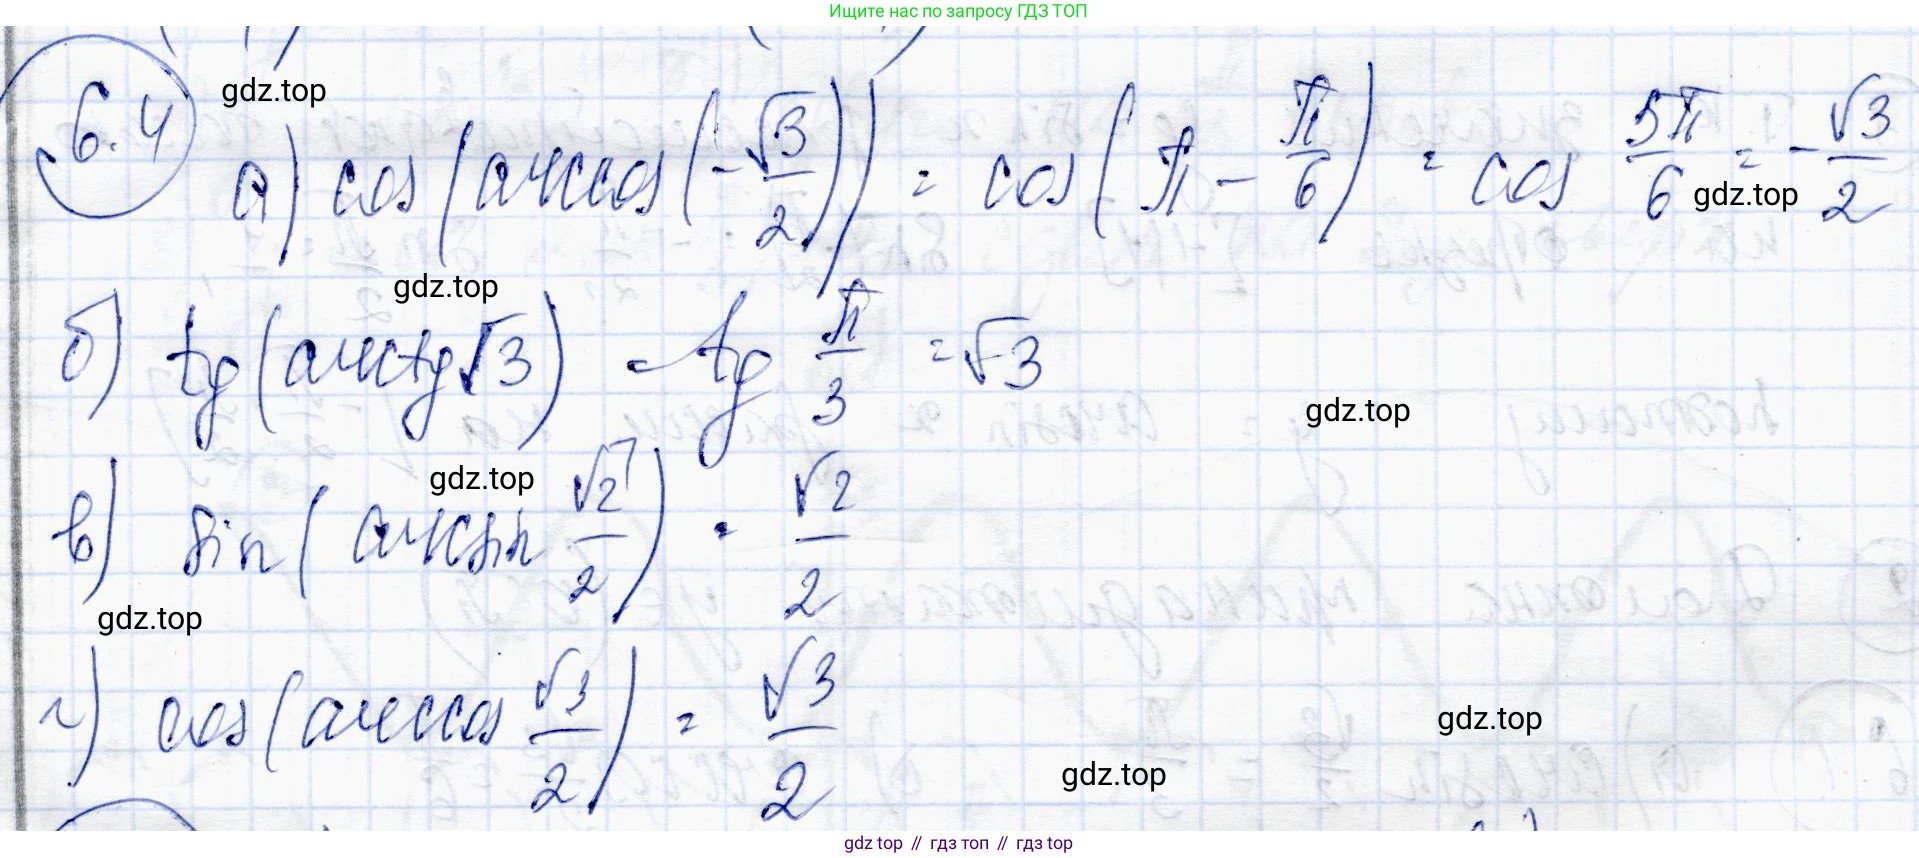 Ищите нас по запросу ГДЗ ТОП
6.4
gdz.top
а) cos(arccos(-√3/2)) = cos(π - π/6) = cos 5π/6 = -√3/2
gdz.top
gdz.top
б) tg(arctg√3) = tg π/3 = √3
gdz.top
gdz.top
в) sin(arcsin √2/2) = √2/2
gdz.top
г) cos(arccos √3/2) = √3/2
gdz.top
gdz.top
gdz top // гдз топ // гдз top